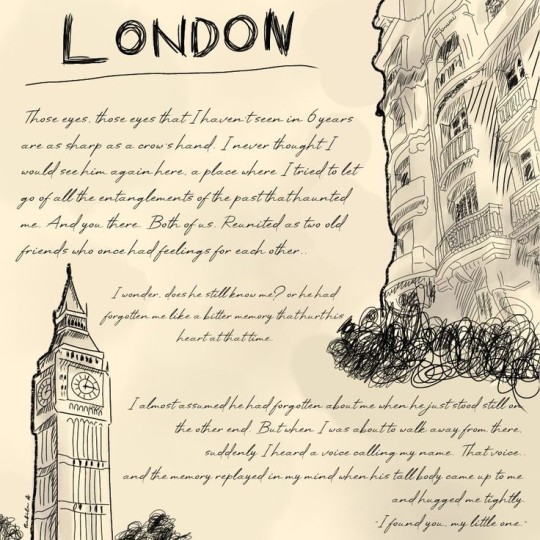 LONDON
Those eyes, those eyes that I haven't seen in 6 years
are as sharp as a crow's hand. I never thought I
would see him again here, a place where I tried to let
go of all the entanglements of the past that haunted
me. And you there. Both of us. Reunited as two old
friends who once had feelings for each other..
I wonder, does he still know me? or he had
forgotten me like a bitter memory that hurt his
heart at that time.
I almost assumed he had forgotten about me when he just stood still on
the other end. But when I was about to walk away from there,
suddenly I heard a voice calling my name. That voice..
and the memory replayed in my mind when his tall body came up to me
and hugged me tightly.
"I found you, my little one."